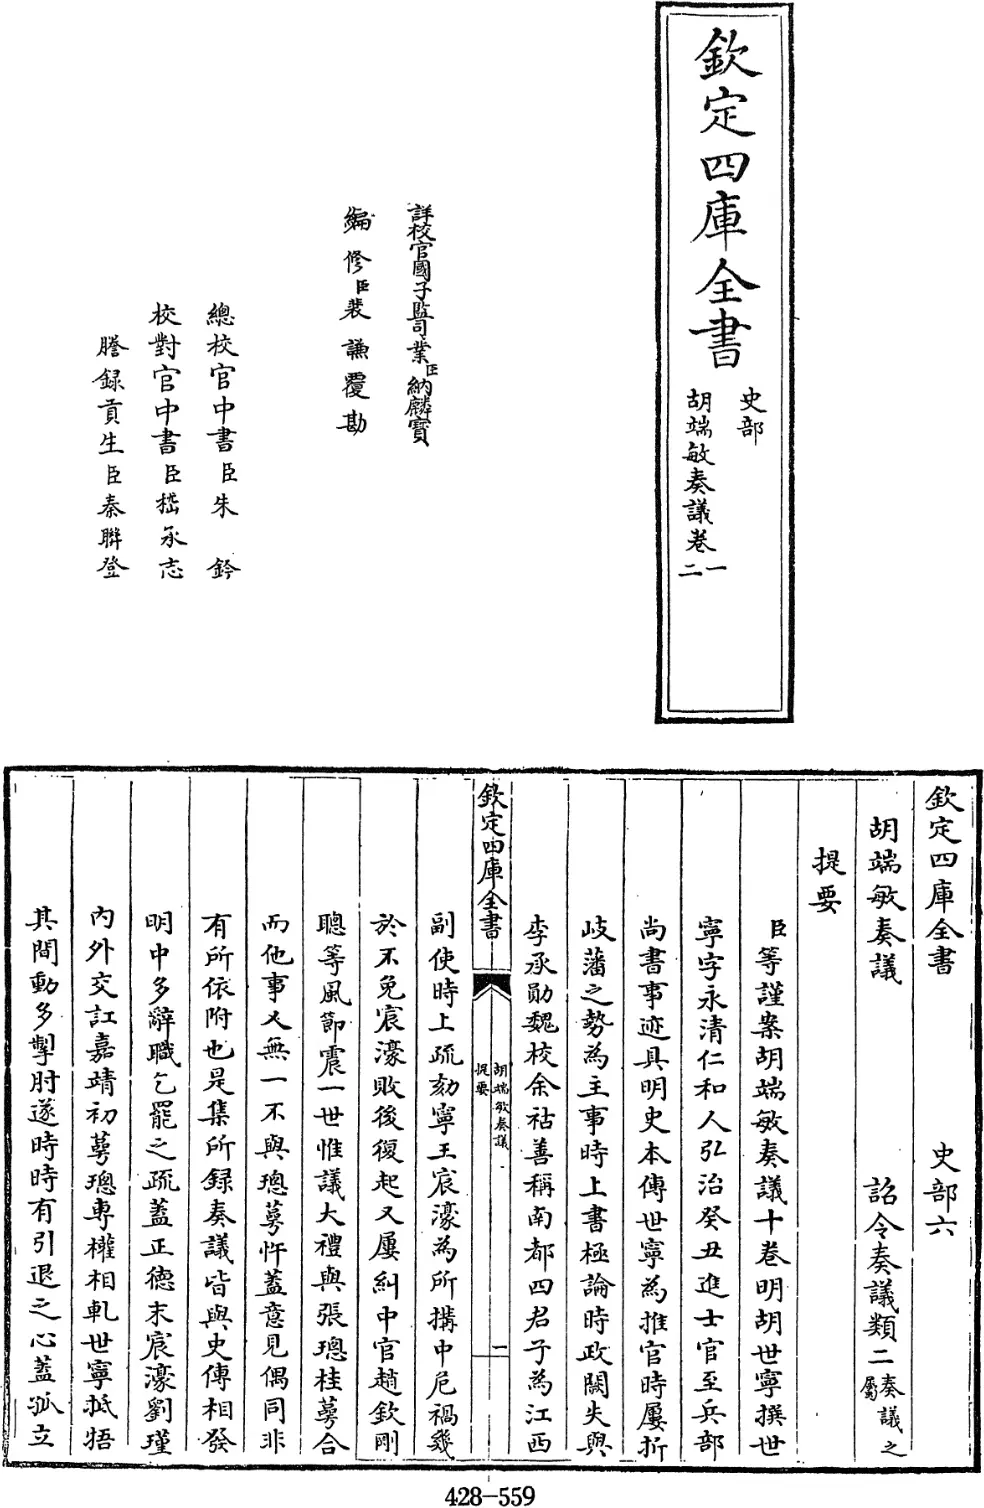 欽定四庫全書
史部
胡端敏奏議卷一二
詳校官國子監司業臣納麟寶
編修臣裴謙覆勘
總校官中書臣朱鈐
校對官中書臣嵇承志
謄錄貢生臣秦聯登
欽定四庫全書 史部六
胡端敏奏議 詔令奏議類二奏議之屬
提要
臣等謹案胡端敏奏議十卷明胡世寧撰世
寧字永清仁和人弘治癸丑進士官至兵部
尚書事迹具明史本傳世寧為推官時屢折
岐藩之勢為主事時上書極論時政闕失與
李承勛魏校余祜善稱南都四君子為江西
欽定四庫全書
胡端敏奏議
提要
一
副使時上疏劾寧王宸濠為所搆中危禍幾
於不免宸濠敗後復起又屢糾中官趙欽剛
聰等風節震一世惟議大禮與張璁桂萼合
而他事又無一不與璁萼忤蓋意見偶同非
有所依附也是集所録奏議皆與史傳相發
明中多辭職乞罷之疏蓋正德末宸濠劉瑾
內外交訌嘉靖初萼璁專權相軋世寧抵牾
其間動多掣肘遂時時有引退之心蓋孤立
428-559